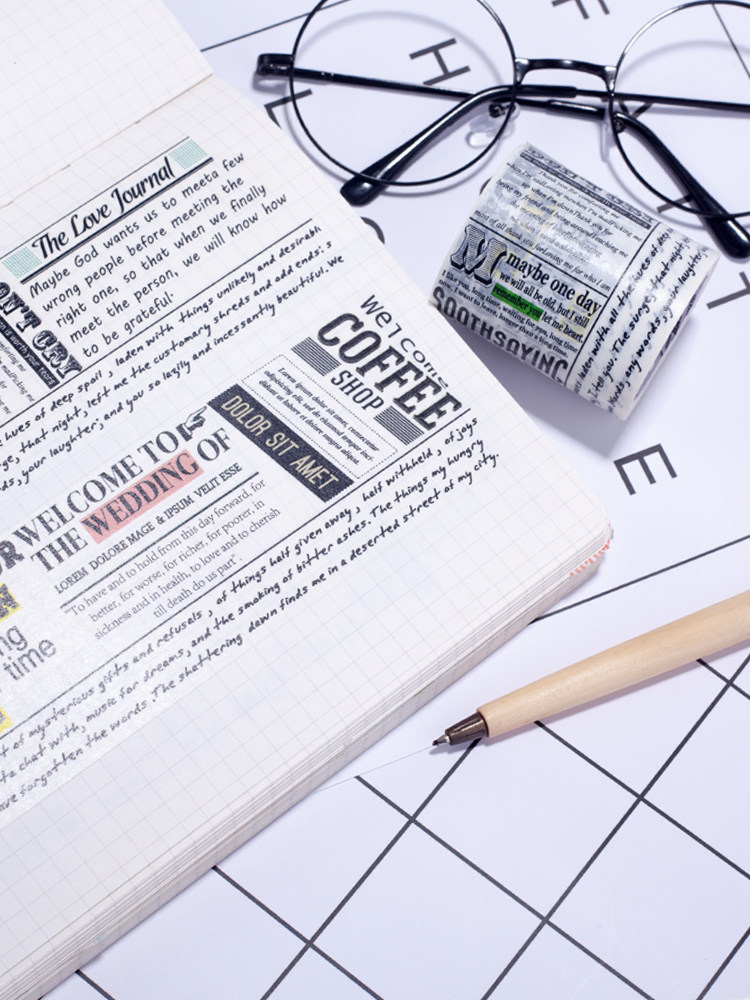 The Love Journal
Maybe God wants us to meeta few
wrong people before meeting the
right one, so that when we finally
meet the person, we will know how
to be grateful.
lues of deep spoil, laden with things unlikely and desirabl.
ge, that night, left me the customary shreds and odd ends: s
ds, your laughter; and you so lazily and incessantly beautiful. We
Welcome
COFFEE
SHOP
Lorem ipsum dolor sit amet, consectetur
adipisicing elit, sed do eiusmod tempor inci.
didunt ut labore et dolore magna aliqua.
DOLOR SIT AMET
WELCOME TO
THE WEDDING OF
LOREM DOLORE MAGE & IPSUM VELIT ESSE
"To have and to hold from this day forward, for
better, for worse, for richer, for poorer, in
sickness and in health, to love and to cherish
till death do us part".
ng
time
t of mysterious gifts and refusals, of things half given away, half withheld, of joys
te chat with, music for dreams, and the smoking of bitter ashes. The things my hungry
ave forgotten the words. The shattering dawn finds me in a deserted street of my city.
M maybe one day
we will all be old, but I still
remember you let me heart.
SOOTHSAYING
H
F
L
E